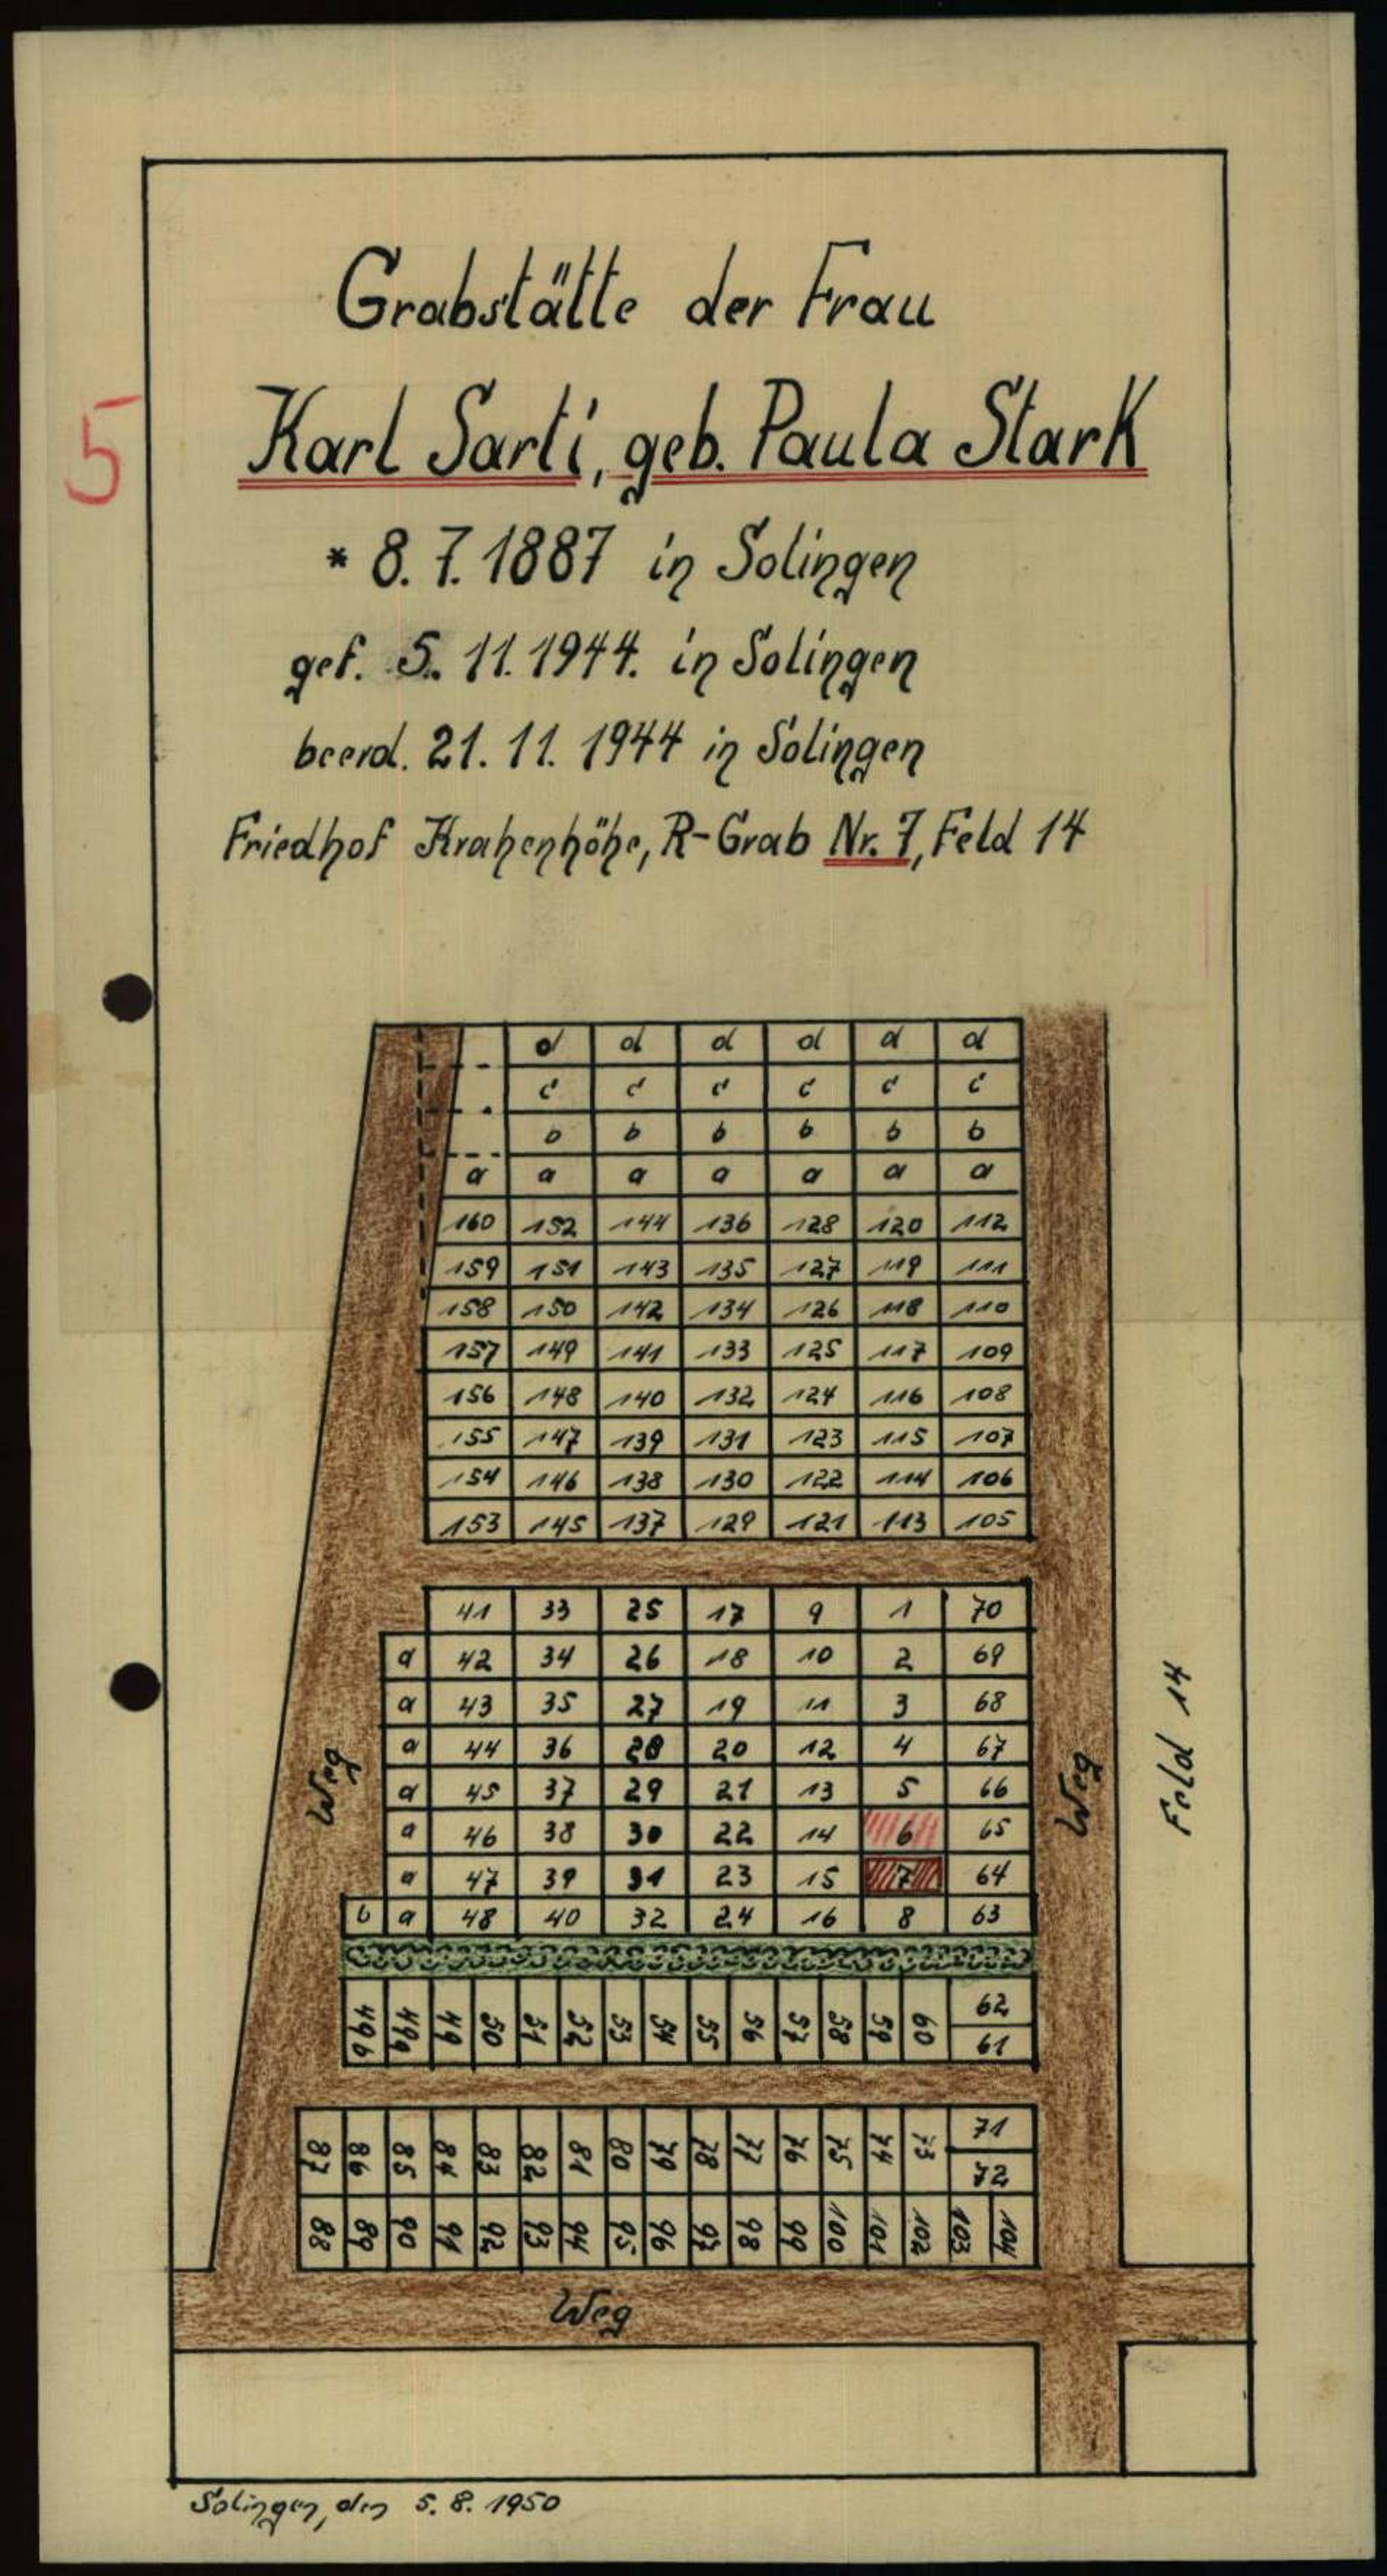 Grabstätte der Frau
5
Karl Sarti, geb. Paula Stark
* 8. 7. 1887 in Solingen
gef. 5. 11. 1944. in Solingen
beerd. 21. 11. 1944 in Solingen
Friedhof Krahenhöhe, R-Grab Nr. 7, Feld 14
d d d d d d
c c c c c c
b b b b b b
a a a a a a a
160 152 144 136 128 120 112
159 151 143 135 127 119 111
158 150 142 134 126 118 110
157 149 141 133 125 117 109
156 148 140 132 124 116 108
155 147 139 131 123 115 107
154 146 138 130 122 114 106
153 145 137 129 121 113 105
41 33 25 17 9 1 70
a 42 34 26 18 10 2 69
a 43 35 27 19 11 3 68
a 44 36 28 20 12 4 67
a 45 37 29 21 13 5 66
a 46 38 30 22 14 6 65
a 47 39 31 23 15 7 64
b a 48 40 32 24 16 8 63
Weg
Weg
Feld 14
49b 49a 49 50 51 52 53 54 55 56 57 58 59 60 62
61
87 86 85 84 83 82 81 80 79 78 77 76 75 74 73 71
72
88 89 90 91 92 93 94 95 96 97 98 99 100 101 102 103 104
Weg
Solingen, den 5. 8. 1950